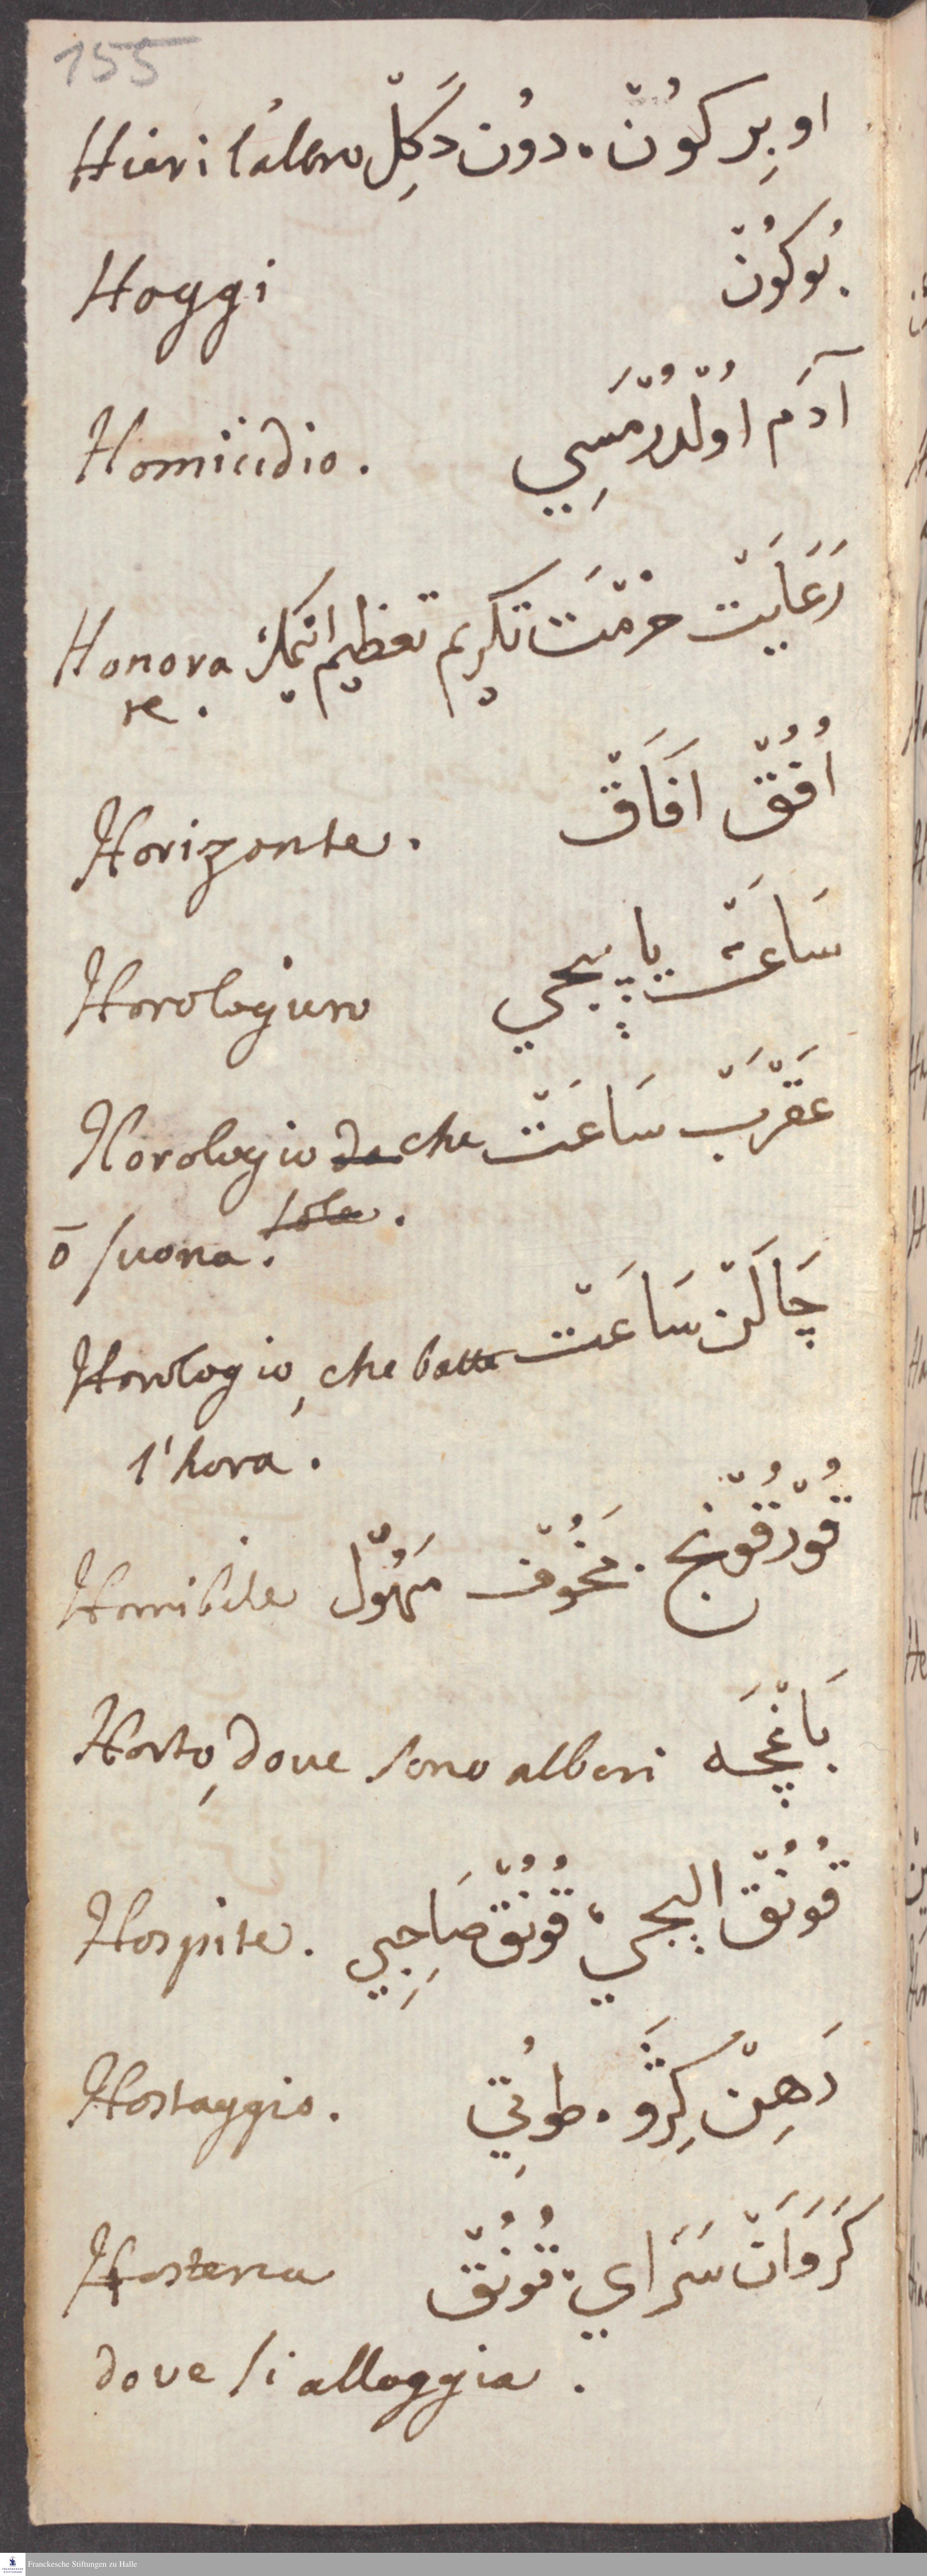 155
Hieri l'altro اوبِر كوُنْ. دوُن دَكِلْ
Hoggi بُوكُوُنْ.
Homicidio. آدَم اوُلْدُرْمَسِي
Honora رَعَايَتْ حرْمَتْ تكريم تعظيم اتمكْ
re.
Horizonte. اُفُقْ اَفَاقْ
Horologiero سَاعَتْ ياپيجي
Horologio de che عَقْرَبْ سَاعَتْ
sole.
ō suona.
Horologio, che batte چَالَنْ سَاعَتْ
l'hora.
Horribile قُورْقُونْج. مَخُوفْ مَهُولْ
Horto, dove sono alberi بَاغْچَه
Hospite. قُونُقْ اليجي، قُونُقْ صَاحِبِي
Hostaggio. رَهِنْ كِرَوْ. طوتِي
Hosteria كَرَوَانْ سَرَاي. قُونُقْ
dove si alloggia.
Franckesche Stiftungen zu Halle